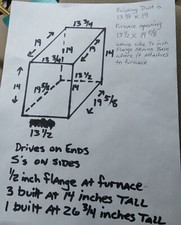 13 3/4
Existing Duct is
13 3/4 x 19
Furnace opening
13 1/2 x 19 5/8
flange
attaches
to furnace
14
19
13 3/4
19
14
19
14
13 1/2
19 5/8
14
19 5/8
13 1/2
Drives on Ends
S's on sides
1/2 inch flange at furnace
3 built at 14 inches TALL
1 built at 26 3/4 inches TALL